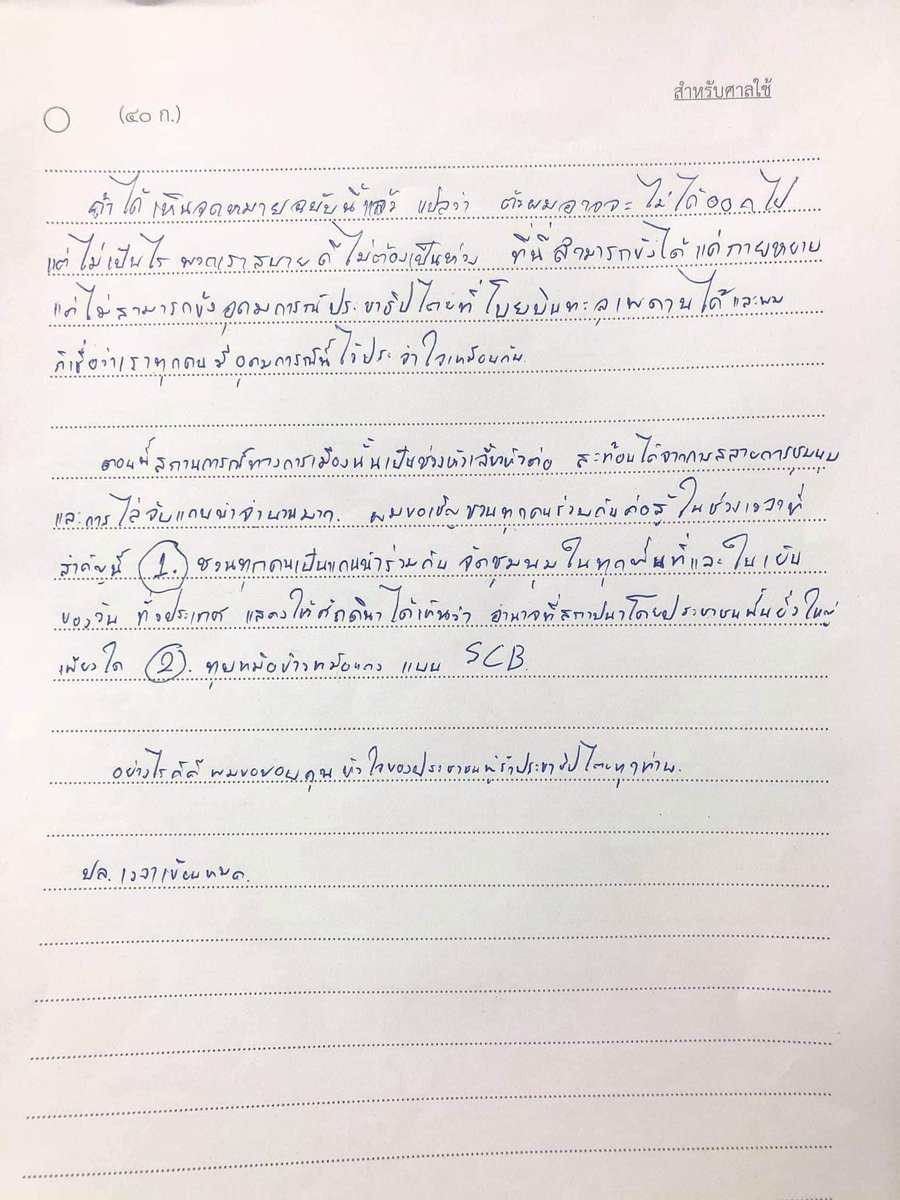 สำหรับศาลใช้
(๔๐ ก.)
ถ้าได้เห็นจดหมายฉบับนี้แล้ว แปลว่า ตัวผมอาจจะไม่ได้ออกไป
แต่ไม่เป็นไร พวกเราสบายดี ไม่ต้องเป็นห่วง ที่นี่สามารถขังได้แค่กายหยาบ
แต่ไม่สามารถขังอุดมการณ์ประชาธิปไตยที่โบยบินทะลุเพดานได้ และผม
ก็เชื่อว่าเราทุกคนมีอุดมการณ์นี้ไว้ประจำใจเหมือนกัน.
ตอนนี้สถานการณ์ทางการเมืองนั้นเป็นช่วงหัวเลี้ยวหัวต่อ สะท้อนได้จากการสลายการชุมนุม
และการไล่จับแกนนำจำนวนมาก. ผมขอเชิญชวนทุกคนร่วมกันต่อสู้ในช่วงเวลาที่
สำคัญนี้ 1. ชวนทุกคนเป็นแกนนำร่วมกัน จัดชุมนุมในทุกพื้นที่และในเย็น
ของวัน ทั่วประเทศ แสดงให้ศักดินาได้เห็นว่า อำนาจที่สถาปนาโดยประชาชนนั้นยิ่งใหญ่
เพียงใด 2. ทุบหม้อข้าวหม้อแกง แบน SCB
อย่างไรก็ดี ผมขอขอบคุณ หัวใจของประชาชนผู้รักประชาธิปไตยทุกท่าน.
ปล. เวลาเขียนหมด.